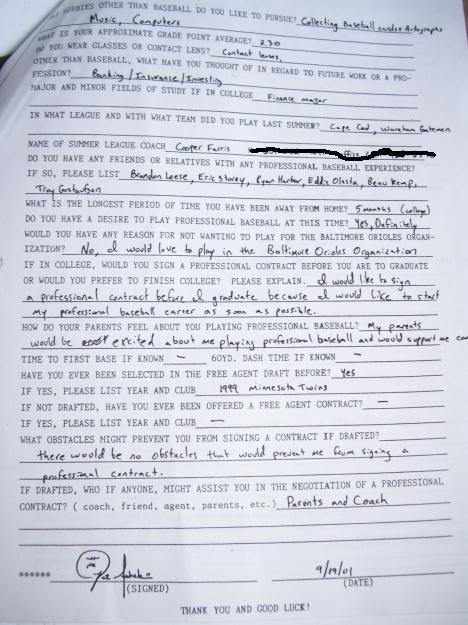 HOBBIES OTHER THAN BASEBALL DO YOU LIKE TO PURSUE? Collecting Baseball cards & Autographs
Music, Computers
WHAT IS YOUR APPROXIMATE GRADE POINT AVERAGE? 3.30
DO YOU WEAR GLASSES OR CONTACT LENS? Contact lenses,
OTHER THAN BASEBALL, WHAT HAVE YOU THOUGHT OF IN REGARD TO FUTURE WORK OR A PRO-
FESSION? Banking/Insurance/Investing
MAJOR AND MINOR FIELDS OF STUDY IF IN COLLEGE Finance major
IN WHAT LEAGUE AND WITH WHAT TEAM DID YOU PLAY LAST SUMMER? Cape Cod, Wareham Gatemen
NAME OF SUMMER LEAGUE COACH Cooper Farris
DO YOU HAVE ANY FRIENDS OR RELATIVES WITH ANY PROFESSIONAL BASEBALL EXPERIENCE?
IF SO, PLEASE LIST Brandon Leese, Eric Storey, Ryan Harber, Eddy Olasta, Beau Kemp,
Troy Gustavson
WHAT IS THE LONGEST PERIOD OF TIME YOU HAVE BEEN AWAY FROM HOME? 5 months (college)
DO YOU HAVE A DESIRE TO PLAY PROFESSIONAL BASEBALL AT THIS TIME? Yes, Definitely
WOULD YOU HAVE ANY REASON FOR NOT WANTING TO PLAY FOR THE BALTIMORE ORIOLES ORGAN-
IZATION? No, I would love to play in the Baltimore Orioles Organization
IF IN COLLEGE, WOULD YOU SIGN A PROFESSIONAL CONTRACT BEFORE YOU ARE TO GRADUATE
OR WOULD YOU PREFER TO FINISH COLLEGE? PLEASE EXPLAIN. I would like to sign
a professional contract before I graduate because I would like to start
my professional baseball career as soon as possible.
HOW DO YOUR PARENTS FEEL ABOUT YOU PLAYING PROFESSIONAL BASEBALL? My parents
would be excited about me playing professional baseball and would support me
TIME TO FIRST BASE IF KNOWN — 60YD. DASH TIME IF KNOWN —
HAVE YOU EVER BEEN SELECTED IN THE FREE AGENT DRAFT BEFORE? Yes
IF YES, PLEASE LIST YEAR AND CLUB 1999 Minnesota Twins
IF NOT DRAFTED, HAVE YOU EVER BEEN OFFERED A FREE AGENT CONTRACT? —
IF YES, PLEASE LIST YEAR AND CLUB —
WHAT OBSTACLES MIGHT PREVENT YOU FROM SIGNING A CONTRACT IF DRAFTED?
there would be no obstacles that would prevent me from signing a
professional contract.
IF DRAFTED, WHO IF ANYONE, MIGHT ASSIST YOU IN THE NEGOTIATION OF A PROFESSIONAL
CONTRACT? ( coach, friend, agent, parents, etc.) Parents and Coach
****** 9/19/01
(SIGNED) (DATE)
THANK YOU AND GOOD LUCK!